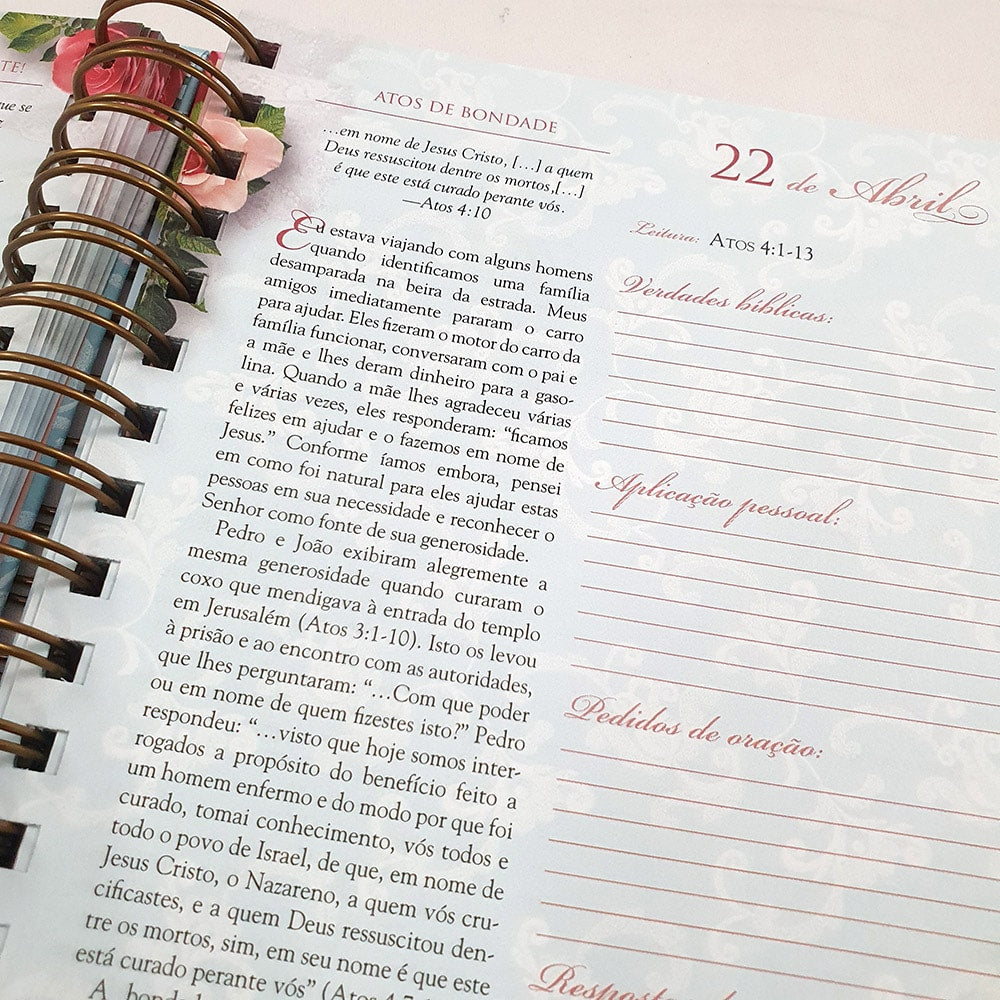 TE!
que se
ATOS DE BONDADE
…em nome de Jesus Cristo, […] a quem
Deus ressuscitou dentre os mortos,[…]
é que este está curado perante vós.
—Atos 4:10
Eu estava viajando com alguns homens
quando identificamos uma família
desamparada na beira da estrada. Meus
amigos imediatamente pararam o carro
para ajudar. Eles fizeram o motor do carro da
família funcionar, conversaram com o pai e
a mãe e lhes deram dinheiro para a gaso-
lina. Quando a mãe lhes agradeceu várias
e várias vezes, eles responderam: “ficamos
felizes em ajudar e o fazemos em nome de
Jesus.” Conforme íamos embora, pensei
em como foi natural para eles ajudar estas
pessoas em sua necessidade e reconhecer o
Senhor como fonte de sua generosidade.
Pedro e João exibiram alegremente a
mesma generosidade quando curaram o
coxo que mendigava à entrada do templo
em Jerusalém (Atos 3:1-10). Isto os levou
à prisão e ao encontro com as autoridades,
que lhes perguntaram: “…Com que poder
ou em nome de quem fizestes isto?” Pedro
respondeu: “…visto que hoje somos inter-
rogados a propósito do benefício feito a
um homem enfermo e do modo por que foi
curado, tomai conhecimento, vós todos e
todo o povo de Israel, de que, em nome de
Jesus Cristo, o Nazareno, a quem vós cru-
cificastes, e a quem Deus ressuscitou den-
tre os mortos, sim, em seu nome é que este
está curado perante vós” (Atos
A
22 de Abril
Leitura: ATOS 4:1-13
Verdades bíblicas:
Aplicação pessoal:
Pedidos de oração: